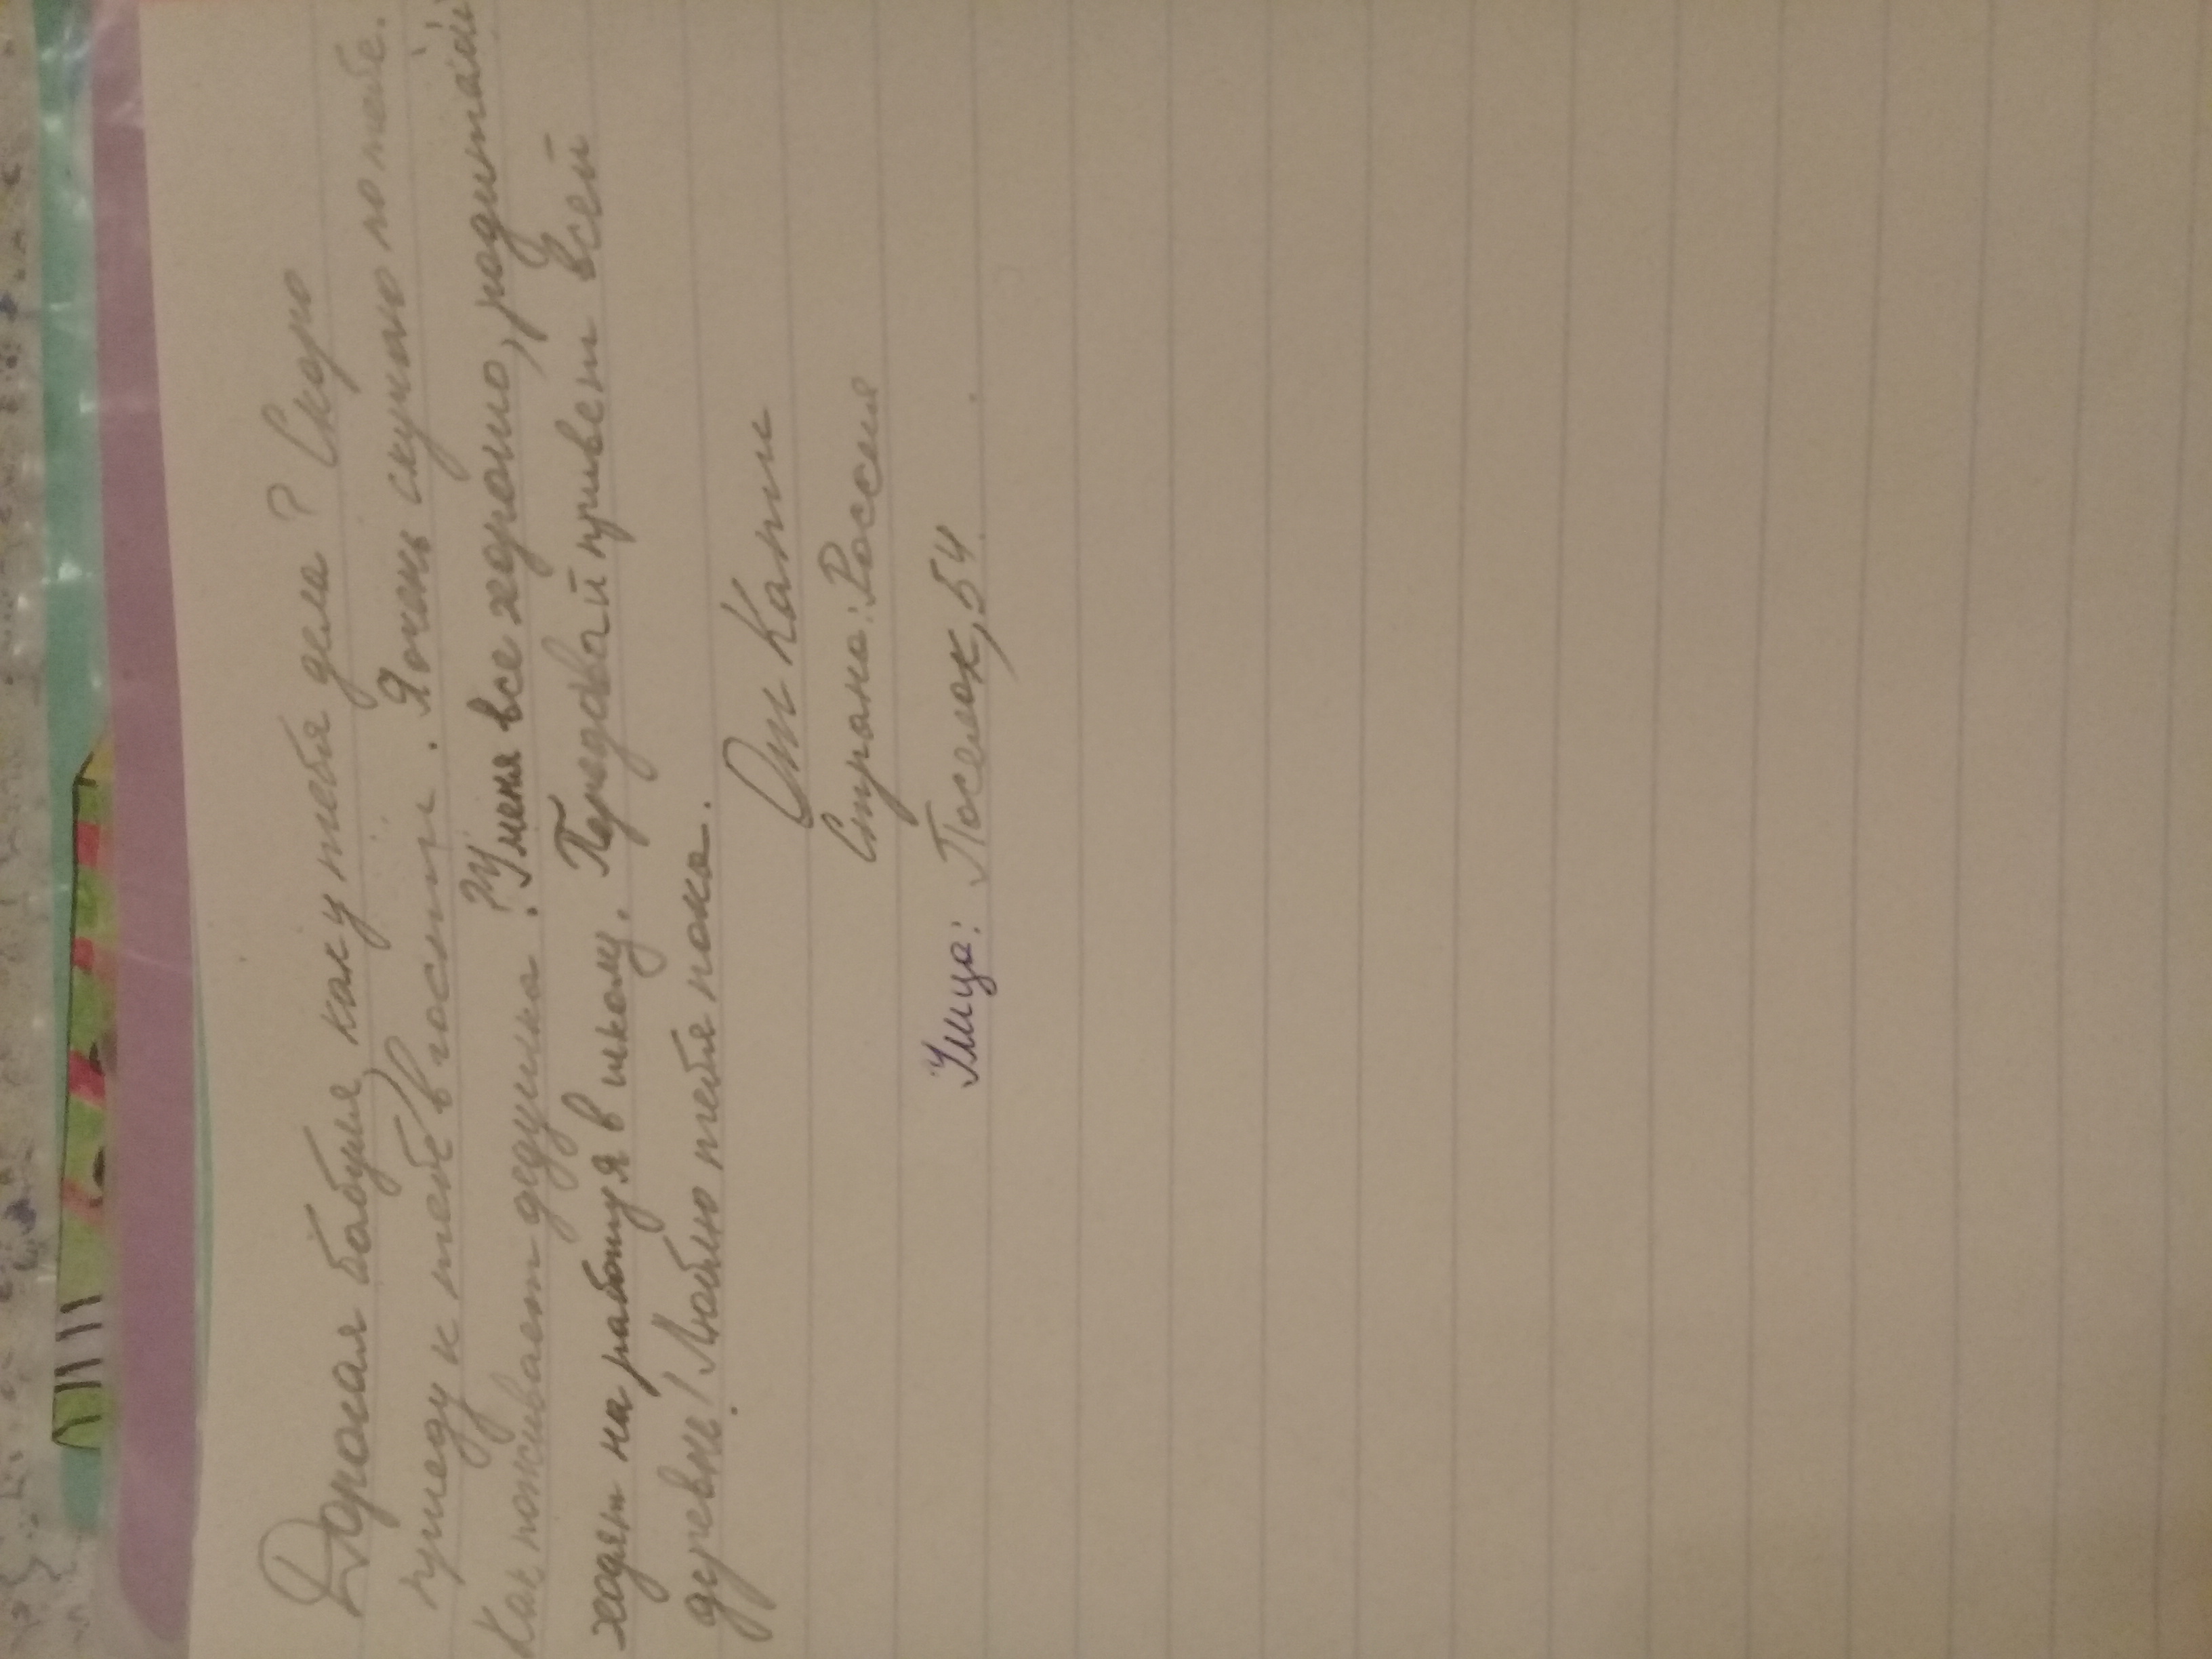 Дорогая бабуля, как у тебя дела? Скоро
приеду к тебе в гости. Я очень скучаю по тебе.
Как поживает дедушка? У меня все хорошо, родитель
ходят на работу я в школу. Передовай привет всей
деревне! Люблю тебя пока.
От Кати
Страна: Россия
Улица: Поселок, 54